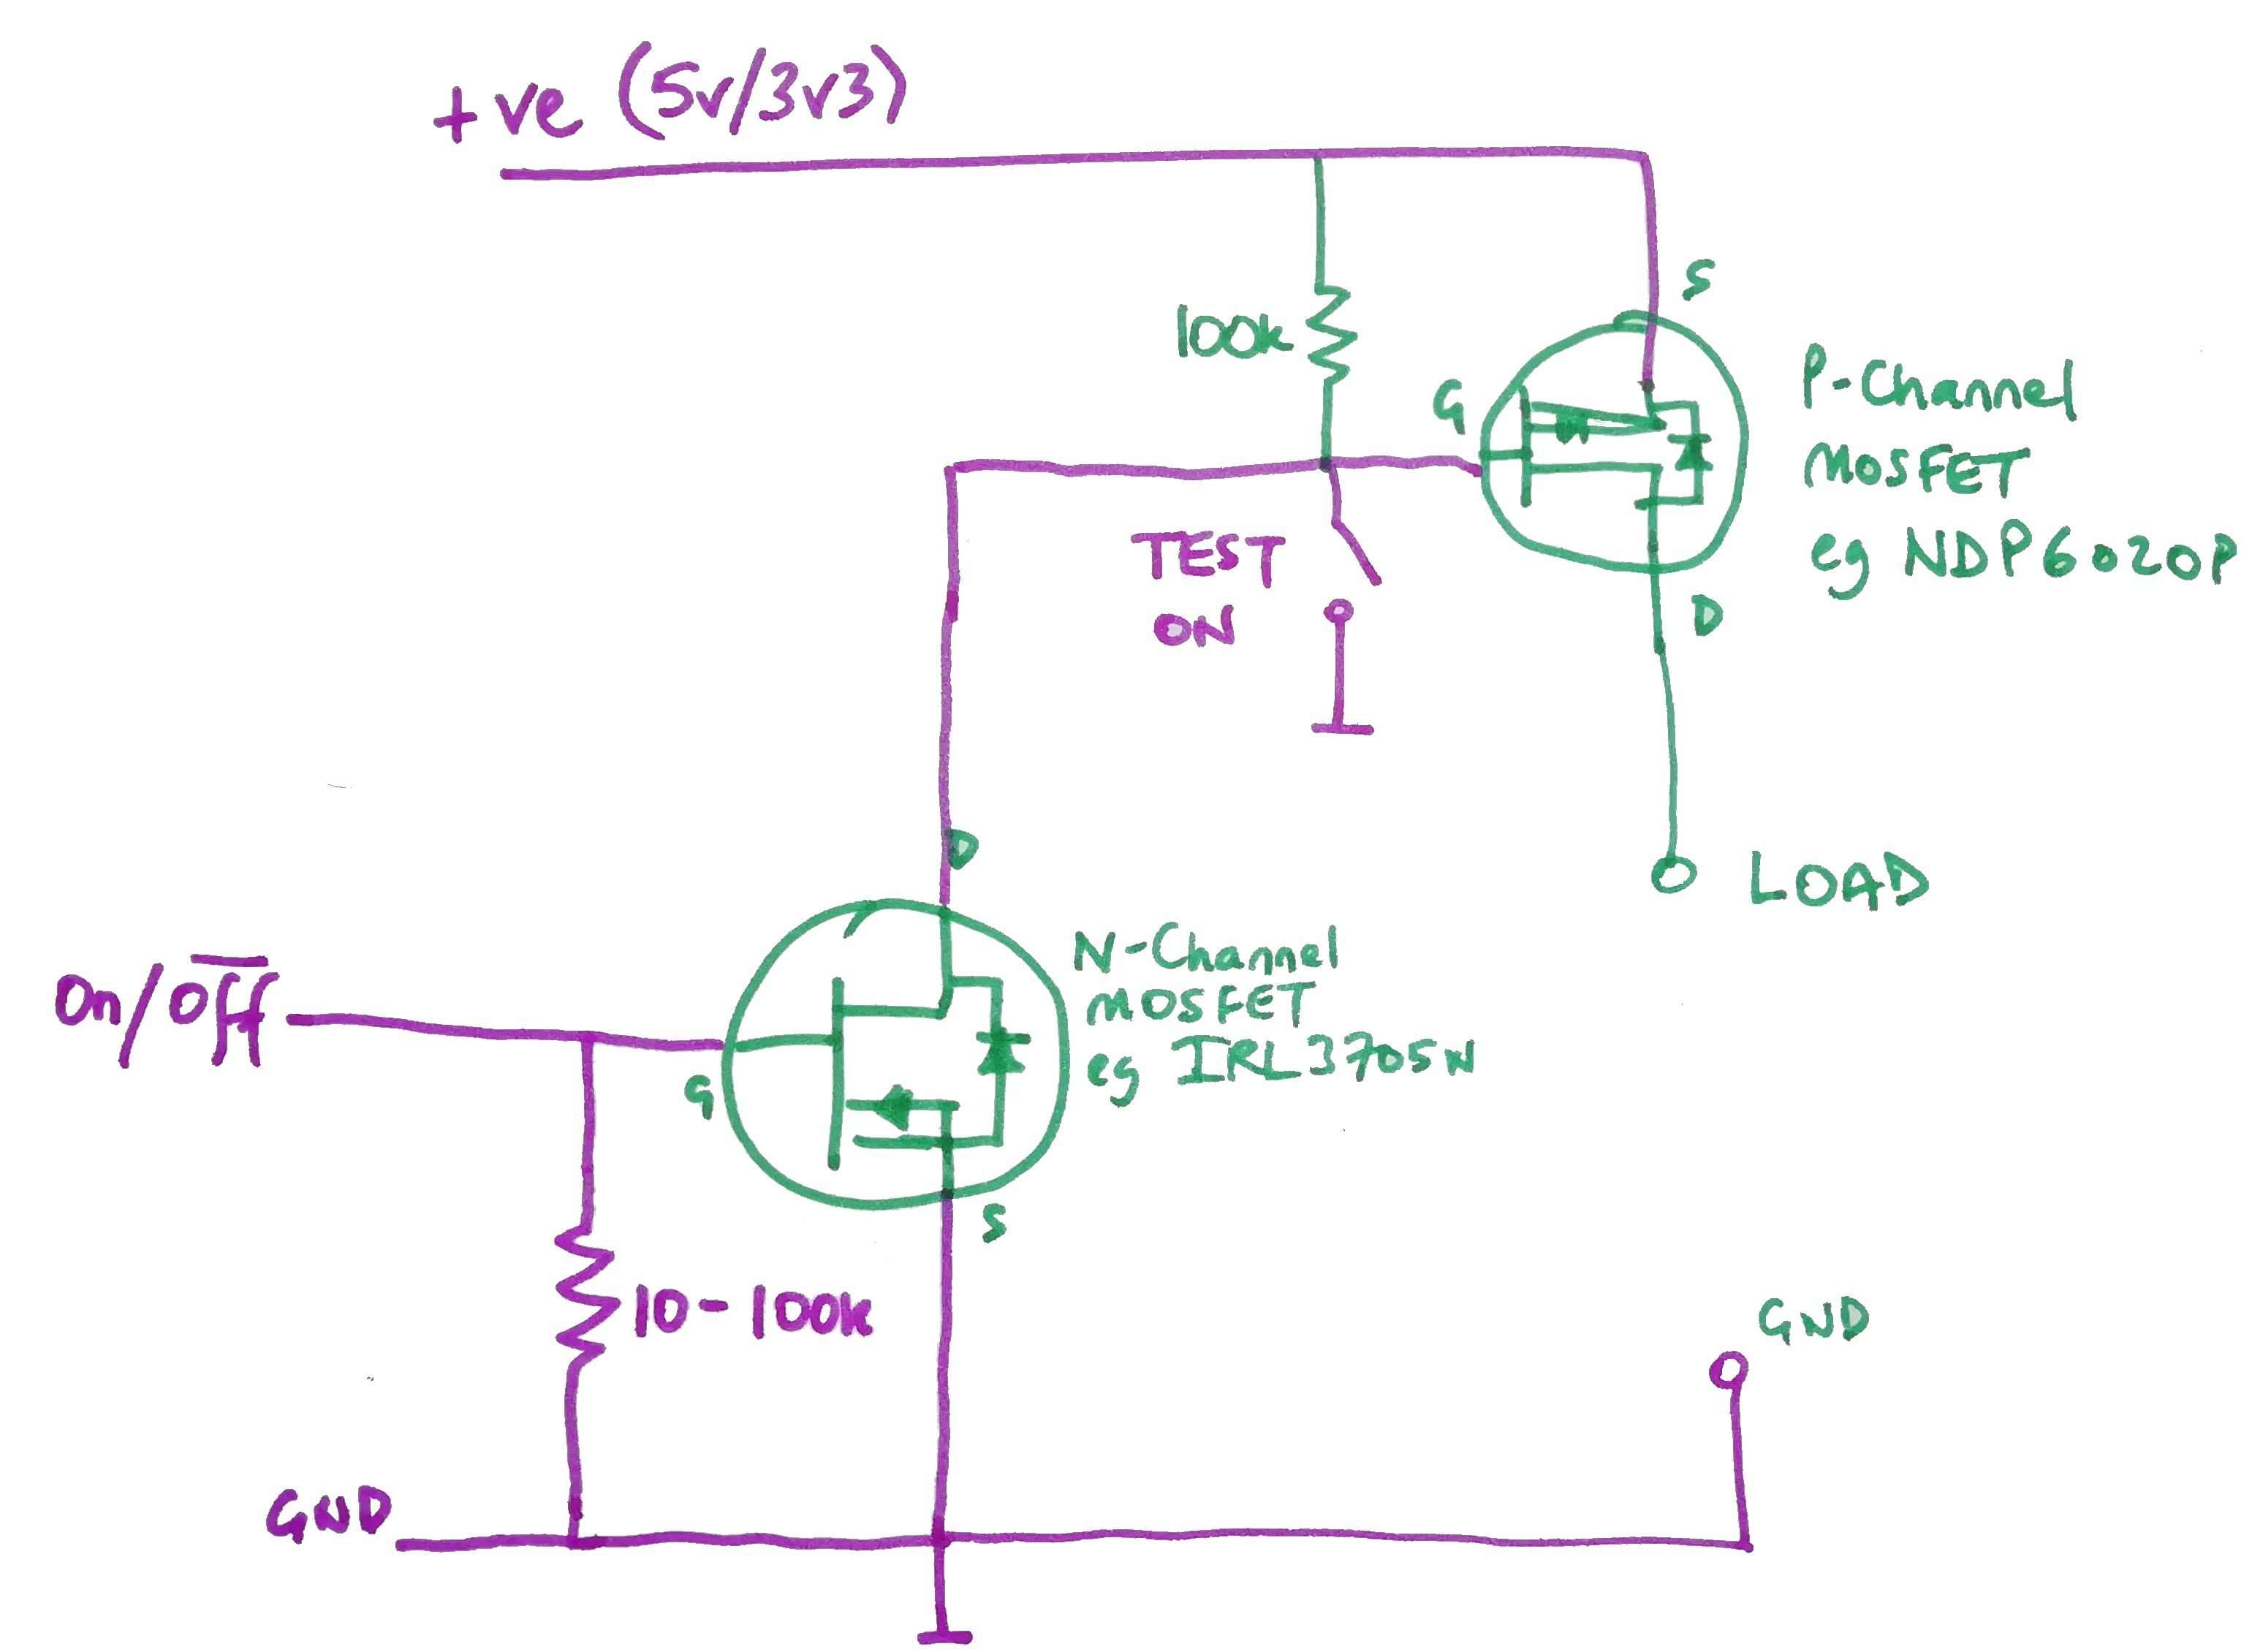 +ve (5v/3v3)
S
100k
G
P-Channel
MOSFET
eg NDP6020P
TEST
ON
D
D
LOAD
On/Off
N-Channel
MOSFET
eg IRL3705N
G
S
10-100k
GND
GND